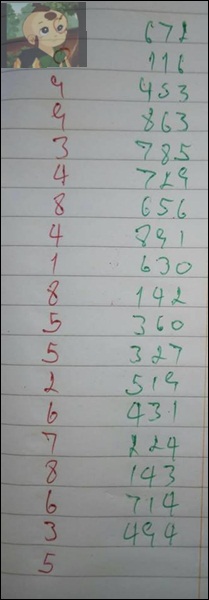 672
116
9 453
9 863
3 785
4 729
8 656
4 891
1 630
8 142
5 360
5 327
2 519
6 431
7 224
8 143
6 714
3 494
5